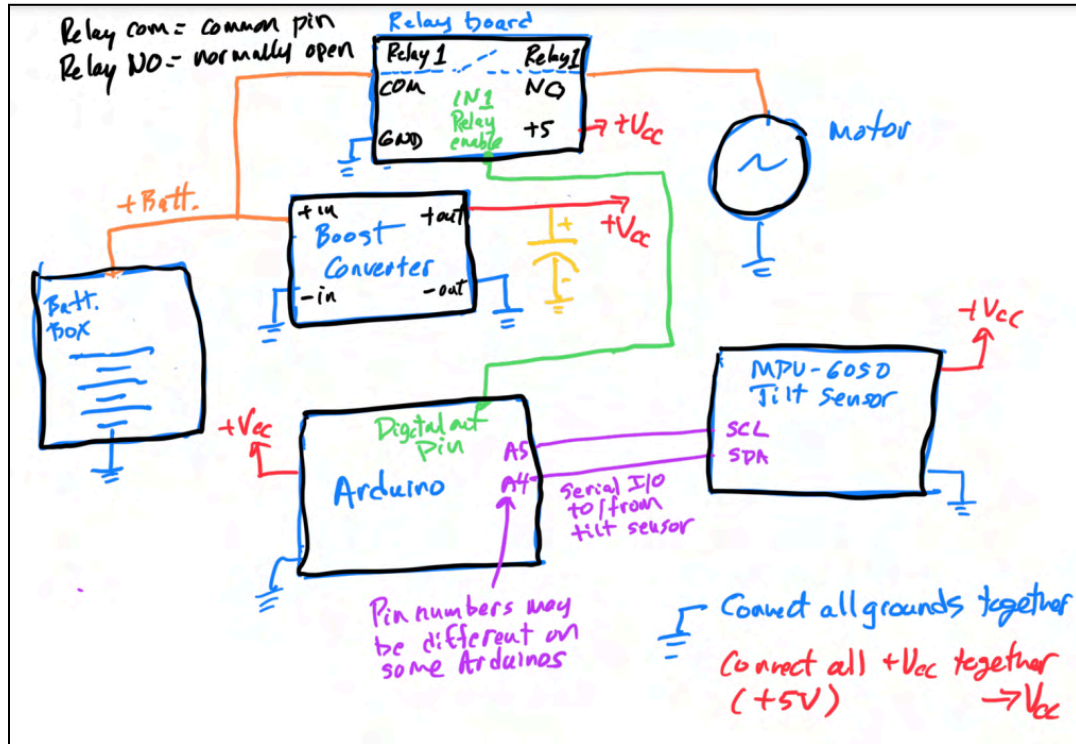 Relay com = common pin
Relay NO = normally open
Relay board
Relay 1
Relay 1
COM
NO
IN1
Relay
enable
GND
+5
+Vcc
motor
+Batt.
+in
+out
Boost
Converter
-in
-out
+Vcc
+
-
Batt.
Box
+Vcc
Digital out
pin
Arduino
A5
A4
Serial I/O
to/from
tilt sensor
MPU-6050
Tilt sensor
SCL
SDA
+Vcc
Pin numbers may
be different on
some Arduinos
Connect all grounds together
Connect all +Vcc together
(+5V) → Vcc